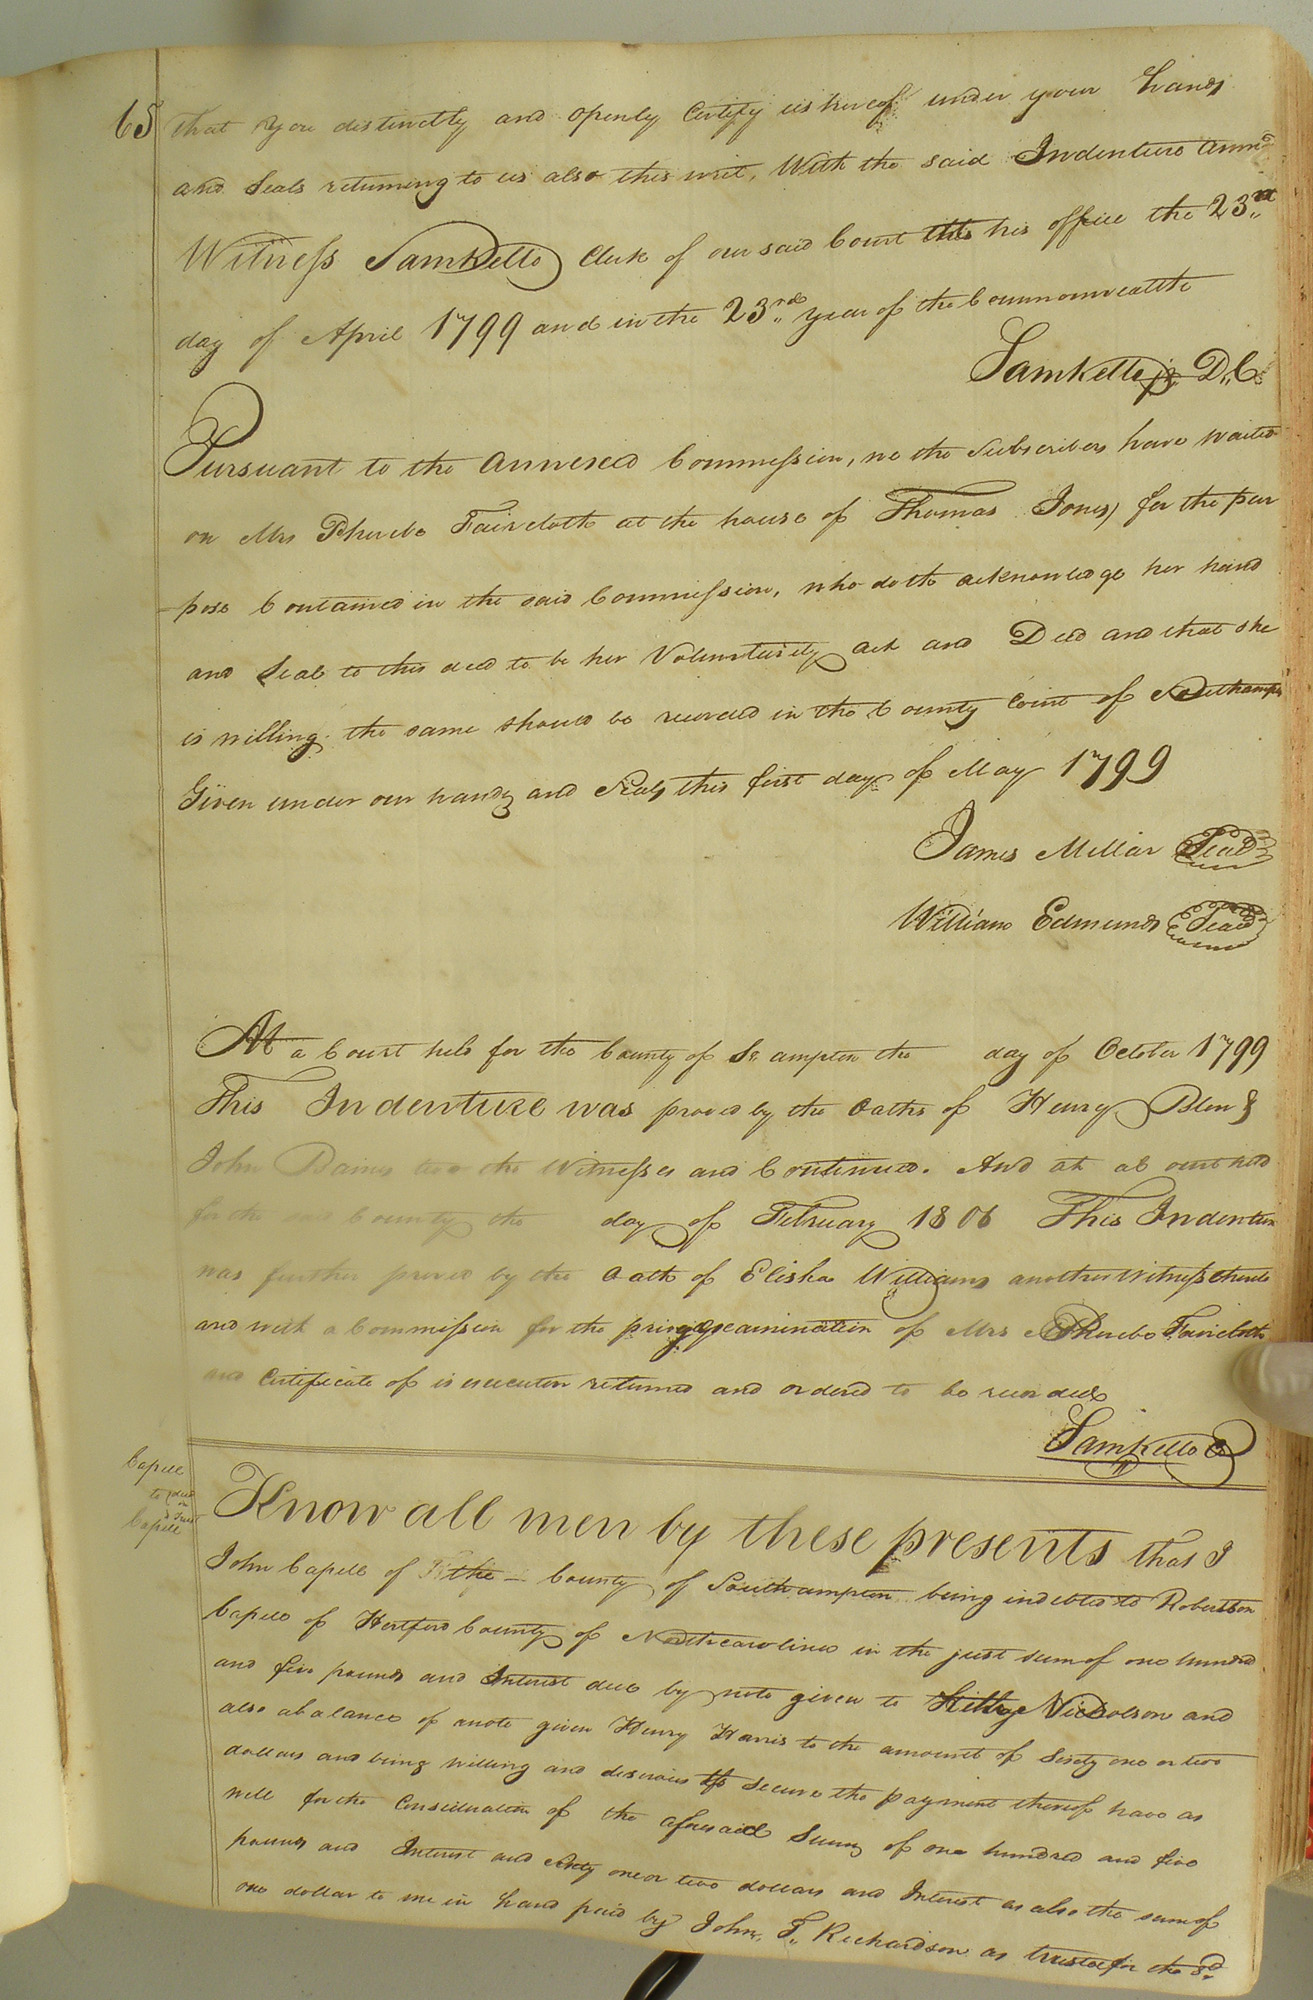 65
that you distinctly and openly Certify us hereof under your hands
and Seals returning to us also this writ, With the said Indenture Annxd
Witness Samkello Clerk of our said Court his office the 23rd
day of April 1799 and in the 23rd year of the Commonwealth
Samkello jr D,,C
Pursuant to the Annexed Commission, we the Subscribers have waited
on Mrs Pheribo Faircloth at the house of Thomas Jones, for the pur
-pose Contained in the said Commission, who doth acknowledge her hand
and Seal to this deed to be her Voluntarily act and Deed and that she
is willing the same should be recorded in the County Court of Southampn
Given under our hands and Seals this first day of May 1799
James Millar Seal
William Edmunds Seal
At a Court held for the County of So. ampton the day of October 1799
This Indenture was proved by the Oaths of Henry Blow &
John Barnes two the Witnesses and Continued. And at a Court held
for the said County the day of February 1806 This Indenture
was further proved by the Oath of Elisha Williams another Witness thereto
and with a Commission for the privy examination of Mrs Pheribo Faircloth
and Certificate of is execution returned and ordered to be recorded
Samkello C
Capell
to deed
in Trust
Capell
Know all men by these presents that I
John Capell of the - County of Southampton being indebted to Robertson
Capell of Hertford County of Northcarolina in the just sum of one hundred
and five pounds and Interest due by note given to Nicholson and
also a balance of a note given Henry Harris to the amount of Sixty one or two
dollars and being willing and desirous to secure the payment thereof have as
well for the Consideration of the aforesaid Sum of one hundred and five
pounds and Interest and sixty one or two dollars and Interest as also the sum of
one dollar to me in hand paid by John T. Richardson as trustee for the sd